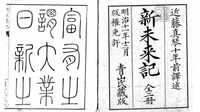 近藤真琴十年前譯述
新未來記 全二冊
明治十一年十月
版權免許 青山藏版
富有之
謂大業
日新之